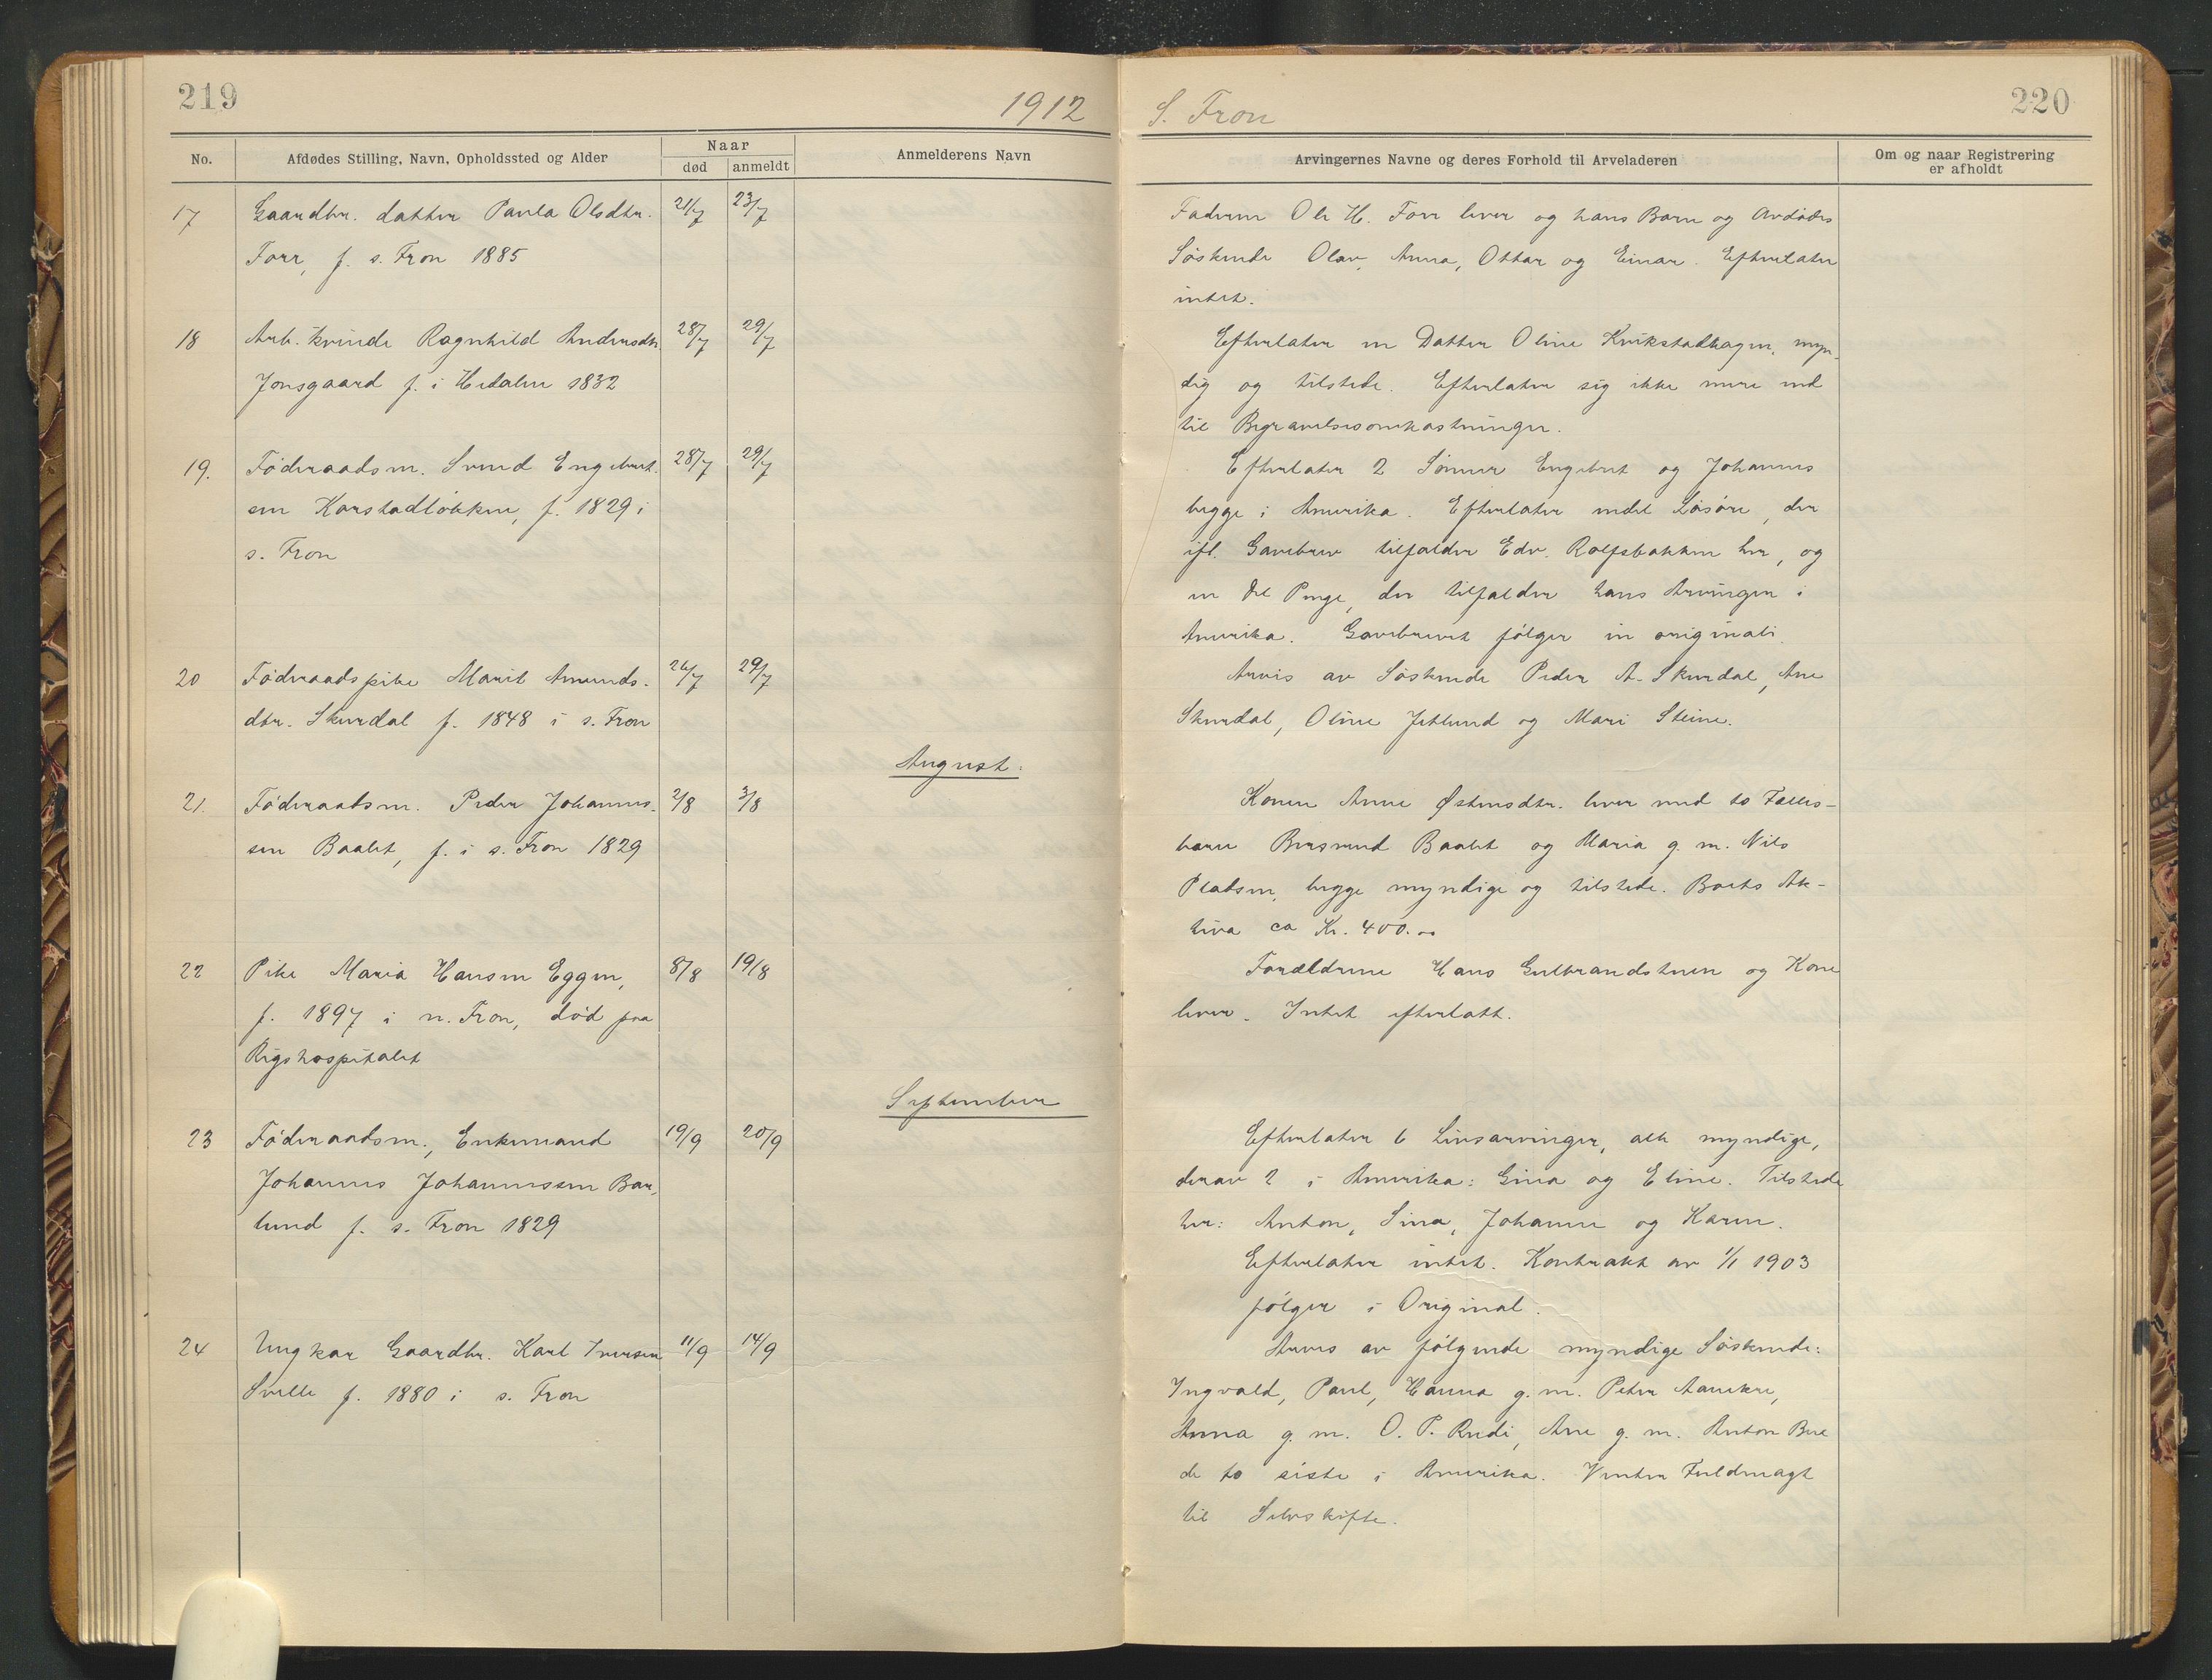 219
1912
No.
Afdødes Stilling, Navn, Opholdssted og Alder
Naar
død
anmeldt
Anmelderens Navn
17 Gaardbr. datter Paula Olsdtr. 21/7 23/7
Forr, f. s. Fron 1885
18 Arb. kvinde Ragnhild Andersdtr. 28/7 29/7
Jonsgaard f. i Hedalen 1832
19. Föderaadsm. Svend Engebret- 28/7 29/7
sen Karstadløkken, f. 1829 i
s. Fron
20 Föderaadspike Marit Amunds- 26/7 29/7
dtr. Skurdal f. 1848 i s. Fron
August.
21. Föderaadsm. Peder Johannes- 2/8 3/8
sen Baalet, f. i s. Fron 1829
22 Pike Maria Hansen Eggen, 8/8 19/8
f. 1897 i n. Fron, död paa
Rigshospitalet
September
23 Föderaadsm., Enkemand 19/9 20/9
Johannes Johannessen Bar-
lund f. s. Fron 1829
24 Ungkar Gaardbr. Karl Iversen 11/9 14/9
Svelle f. 1880 i s. Fron
S. Fron
220
Arvingernes Navne og deres Forhold til Arveladeren
Om og naar Registrering
er afholdt
Faderen Ole H. Forr lever og hans Barn og Avdödes
Söskende Olav, Anna, Ottar og Einar. Efterlater
intet.
Efterlater en Datter Oline Kvikstadhagen, myn-
dig og tilstede. Efterlater sig ikke mere end
til Begravelsesomkostninger.
Efterlater 2 Sönner Engebret og Johannes
begge i Amerika. Efterlater endel Lösöre, der
ifl. Gavebrev tilfalder Edv. Rolfsbakken her, og
en Del Penge, der tilfalder hans Arvinger i
Amerika. Gavebrevet fölger in originali.
Arves av Söskende Peder A. Skurdal, Ane
Skurdal, Oline Jetlund og Mari Steine.
Konen Anne Østensdtr. lever med to Fælles-
barn Bersvend Baalet og Maria g. m. Nils
Pladsen, begge myndige og tilstede. Boets Ak-
tiva ca Kr. 400.00
Forældrene Hans Gulbrandstuen og Kone
lever. Intet efterlatt.
Efterlater 6 Livsarvinger, alle myndige,
derav 2 i Amerika: Gina og Eline. Tilstede
her: Anton, Sina, Johanne og Karen.
Efterlater intet. Kontrakt av 1/1 1903
fölger i Original.
Arves av fölgende myndige Söskende:
Ingvald, Paul, Hanna g. m. Peter
Anna g. m. O. P. Rudi, Ane g. m. Anton
de to siste i Amerika. Venter Fuldmagt
til Selvskifte.